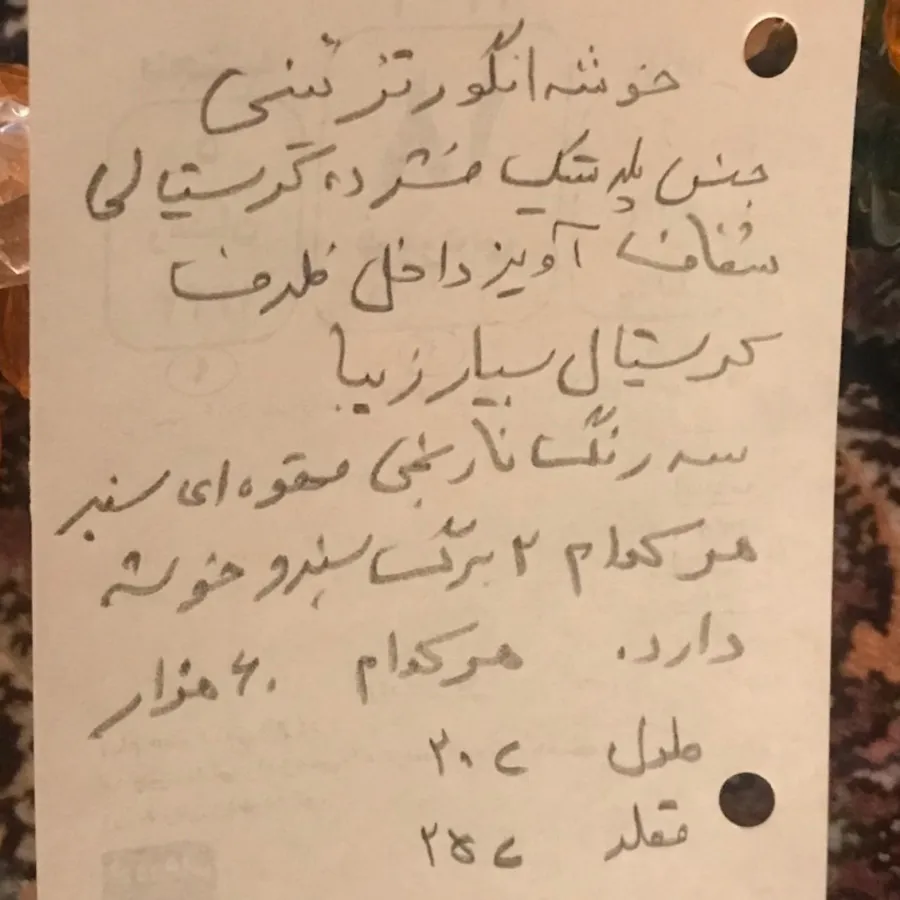 خوشه انگور تزئینی
جنس پلاستیک فشرده کریستالی
شفاف آویز داخل ظرف
کریستال بسیار زیبا
سه رنگ نارنجی قهوه ای سبز
هر کدام ۲ برگ سبز و خوشه
دارد. هر کدام ۶۰ هزار
طول ۲۰
قطر ۲۵